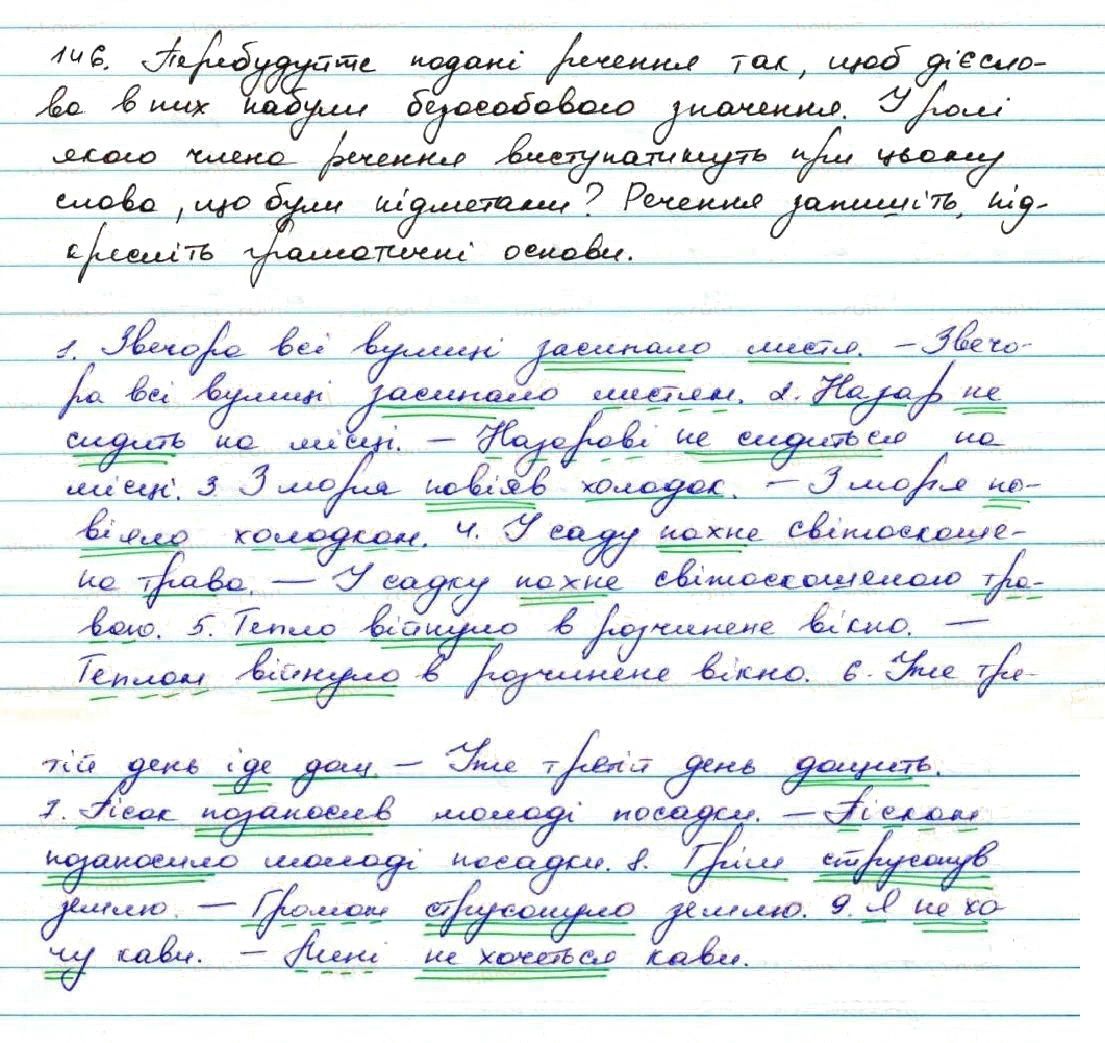 146. Перебудуйте подані речення так, щоб дієсло-
ва в них набули безособового значення. У ролі
якого члена речення виступатимуть при цьому
слова, що були підметами? Речення запишіть, під-
кресліть граматичні основи.
1. Звечора всі вулиці засипало листя. – Звечо-
ра всі вулиці засипало листям. 2. Назар не
сидить на місці. – Назарові не сидиться на
місці. 3. З моря повіяв холодок. – З моря по-
віяло холодком. 4. У саду пахне свіжоскоше-
на трава. – У садку пахне свіжоскошеною тра-
вою. 5. Тепло війнуло в розчинене вікно. –
Теплом війнуло в розчинене вікно. 6. Уже тре-
тій день іде дощ. – Уже третій день дощить.
7. Пісок позаносив молоді посадки. – Піском
позаносило молоді посадки. 8. Грім струсонув
землю. – Громом струсонуло землю. 9. Я не хо
чу кави. – Мені не хочеться кави.